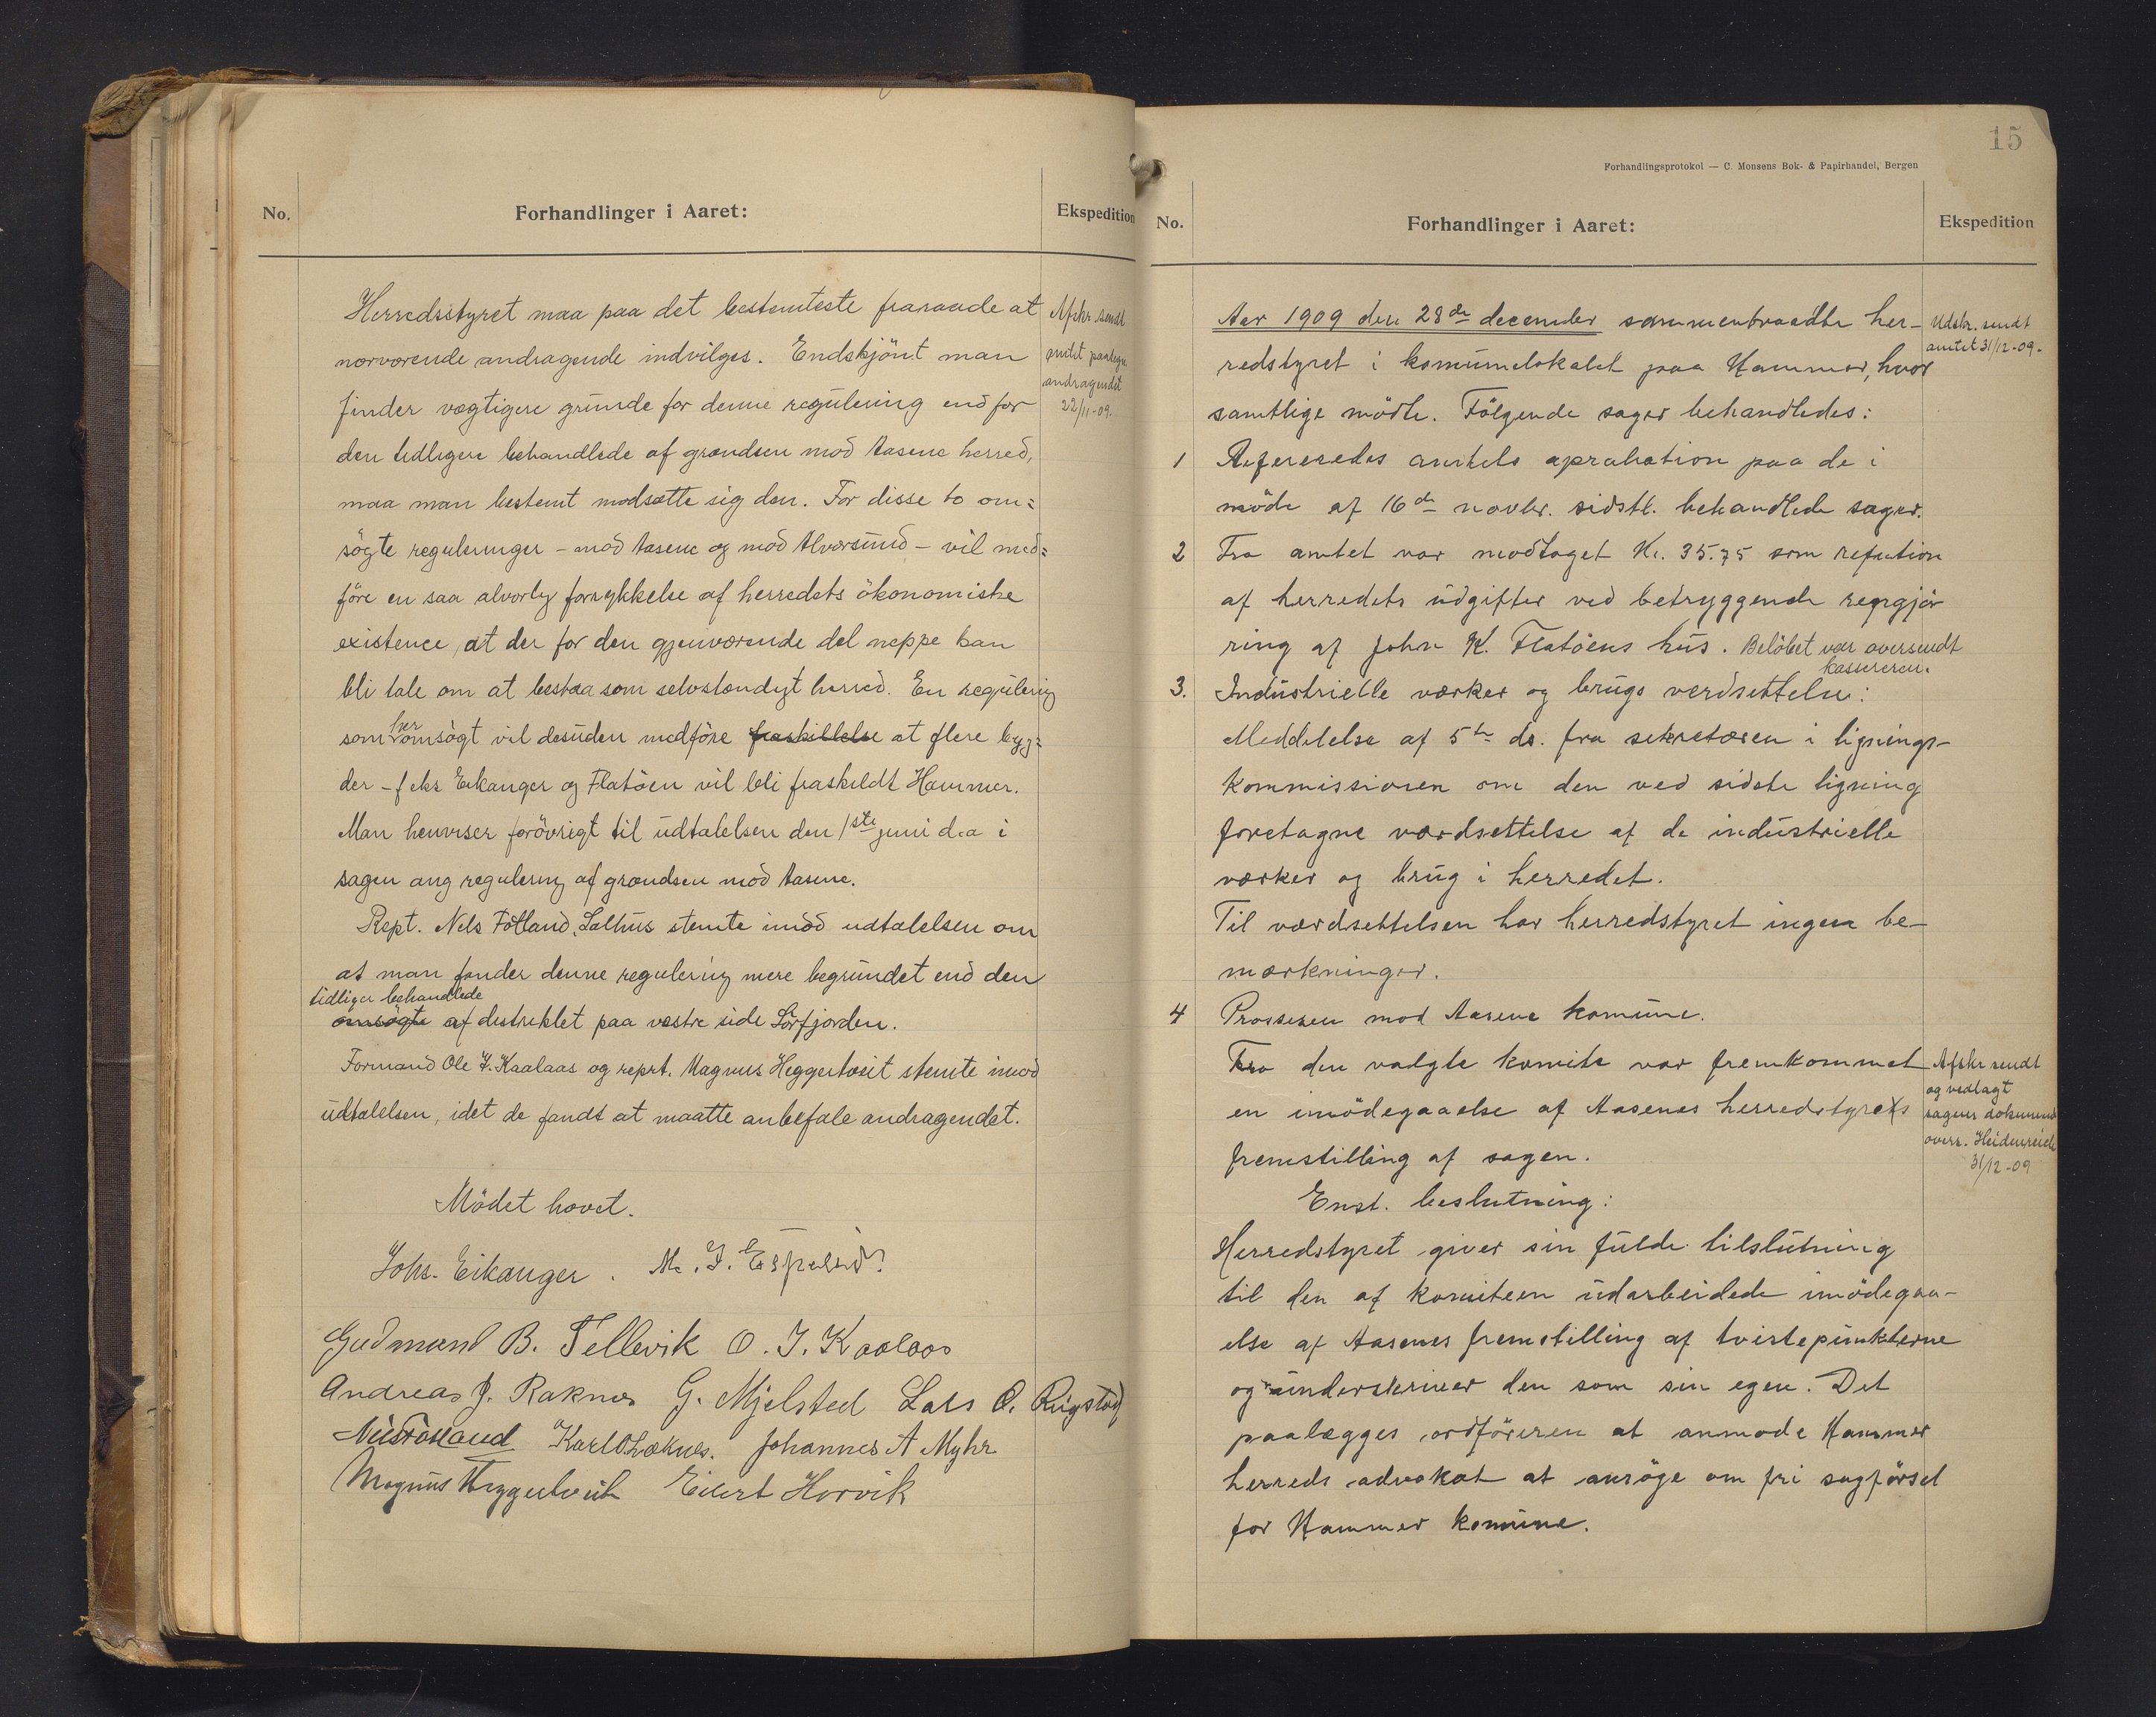 No.
Forhandlinger i Aaret:
Ekspedition
Herredsstyret maa paa det bestemteste fraraade at
nærværende andragende indvilges. Endskjönt man
finder vægtigere grunde for denne regulering end for
den tidligere behandlede af grændsen mod Aasene herred,
maa man bestemt modsætte sig den. For disse to om=
søgte reguleringer – mod Aasene og mod Alversund – vil med=
føre en saa alvorlig forrykkelse af herredets økonomiske
existence, at der for den gjenværende del neppe kan
bli tale om at bestaa som selvstændigt herred. En regulering
som her omsøgt vil desuden medføre fraskillelse at flere byg=
der – f eks Eikanger og Flatöen vil bli fraskildt Hammer.
Man henviser forövrigt til udtalelsen den 1ste juni d.a i
sagen ang regulering af grændsen mod Aasene.
Rept. Nels Fotland, Salhus stemte imod udtalelsen om
at man finder denne regulering mere begrundet end den
tidliger behandlede
omsøgte af destriktet paa vestre side Sörfjorden.
Formand Ole J. Kaalaas og reprt. Magnus Heggertveit stemte imod
udtalelsen, idet de fandt at maatte anbefale andragendet.
Mödet hævet.
Johs. Eikanger. M. J. Espelid.
Gudmund B. Tellevik O. J. Kaalaas
Andreas J. Raknes G. Mjelsted Lars O. Rigstad
Nils Fotland Karl O Læknes. Johannes A Myhr
Magnus Heggertveit Eilert Horvik
Afskr. sendt
amtet paategn.
andragendet
22/11-09.
15
Forhandlingsprotokol — C. Monsens Bok- & Papirhandel, Bergen
No.
Forhandlinger i Aaret:
Ekspedition
Aar 1909 den 28de december sammentraadte her-
redstyret i komunelokalet paa Hammer, hvor
samtlige mödte. Fölgende sager behandledes:
Udskr. sendt
amtet 31/12-09.
1 Refereredes amtets aprobation paa de i
möde af 16de novbr. sidstl. behandlede sager.
2 Fra amtet var modtaget Kr. 35.75 som refution
af herredets udgifter ved betryggende rengjö-
ring af John K. Flatöens hus. Belöbet var oversendt
kassereren.
3. Industrielle værker og brugs verdsettelse:
Meddelelse af 5te ds. fra sekretæren i lignings-
kommissionen om den ved sidste ligning
foretagne værdsettelse af de industrielle
værker og brug i herredet.
Til værdsettelsen har herredstyret ingen be-
mærkninger.
4 Prossesen mod Aasene komune.
Fra den valgte komite var fremkommet
en imödegaaelse af Aasenes herredstyrets
fremstilling af sagen.
Afskr sendt
og vedlagt
sagens dokument
overr. Heidenreich
31/12-09
Enst. beslutning:
Herredstyret giver sin fulde tilslutning
til den af komiteen udarbeidede imödegaa-
else af Aasenes fremstilling af tvistepunkterne
og underskriver den som sin egen. Det
paalægges ordföreren at anmode Hammer
herreds advokat at ansöge om fri sagförsel
for Hammer komune.